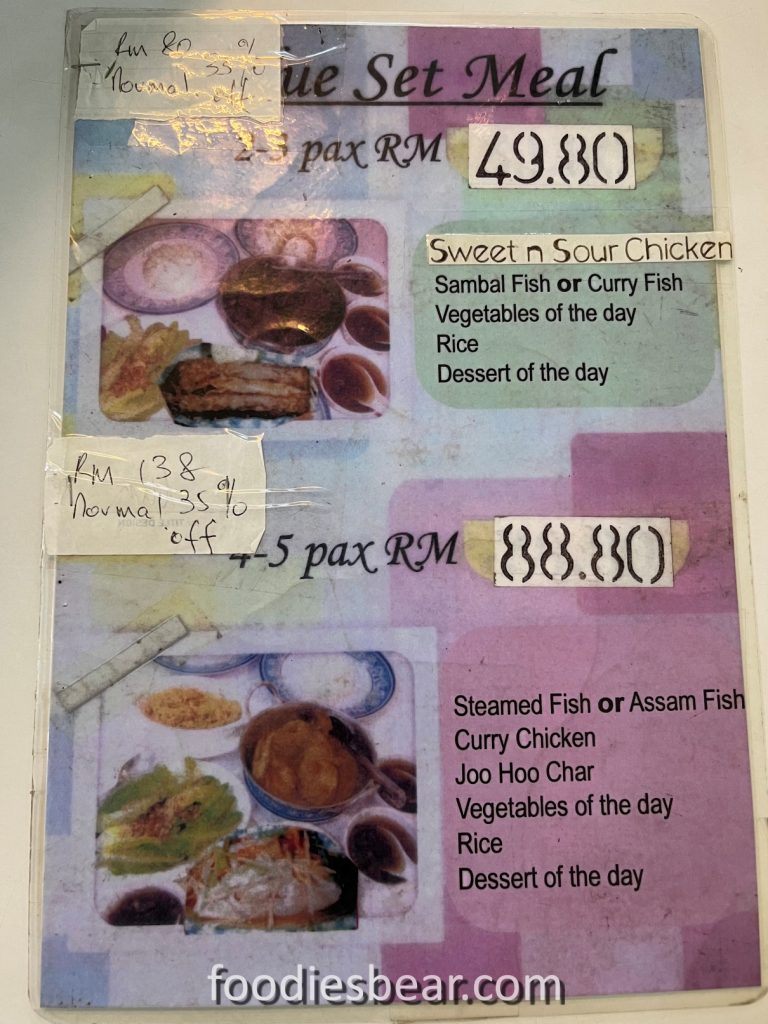 Rm 80 35%
Normal off
ue Set Meal
2-3 pax RM 49.80
Sweet n Sour Chicken
Sambal Fish or Curry Fish
Vegetables of the day
Rice
Dessert of the day
RM 138
Normal 35%
off
4-5 pax RM 88.80
Steamed Fish or Assam Fish
Curry Chicken
Joo Hoo Char
Vegetables of the day
Rice
Dessert of the day
foodiesbear.com